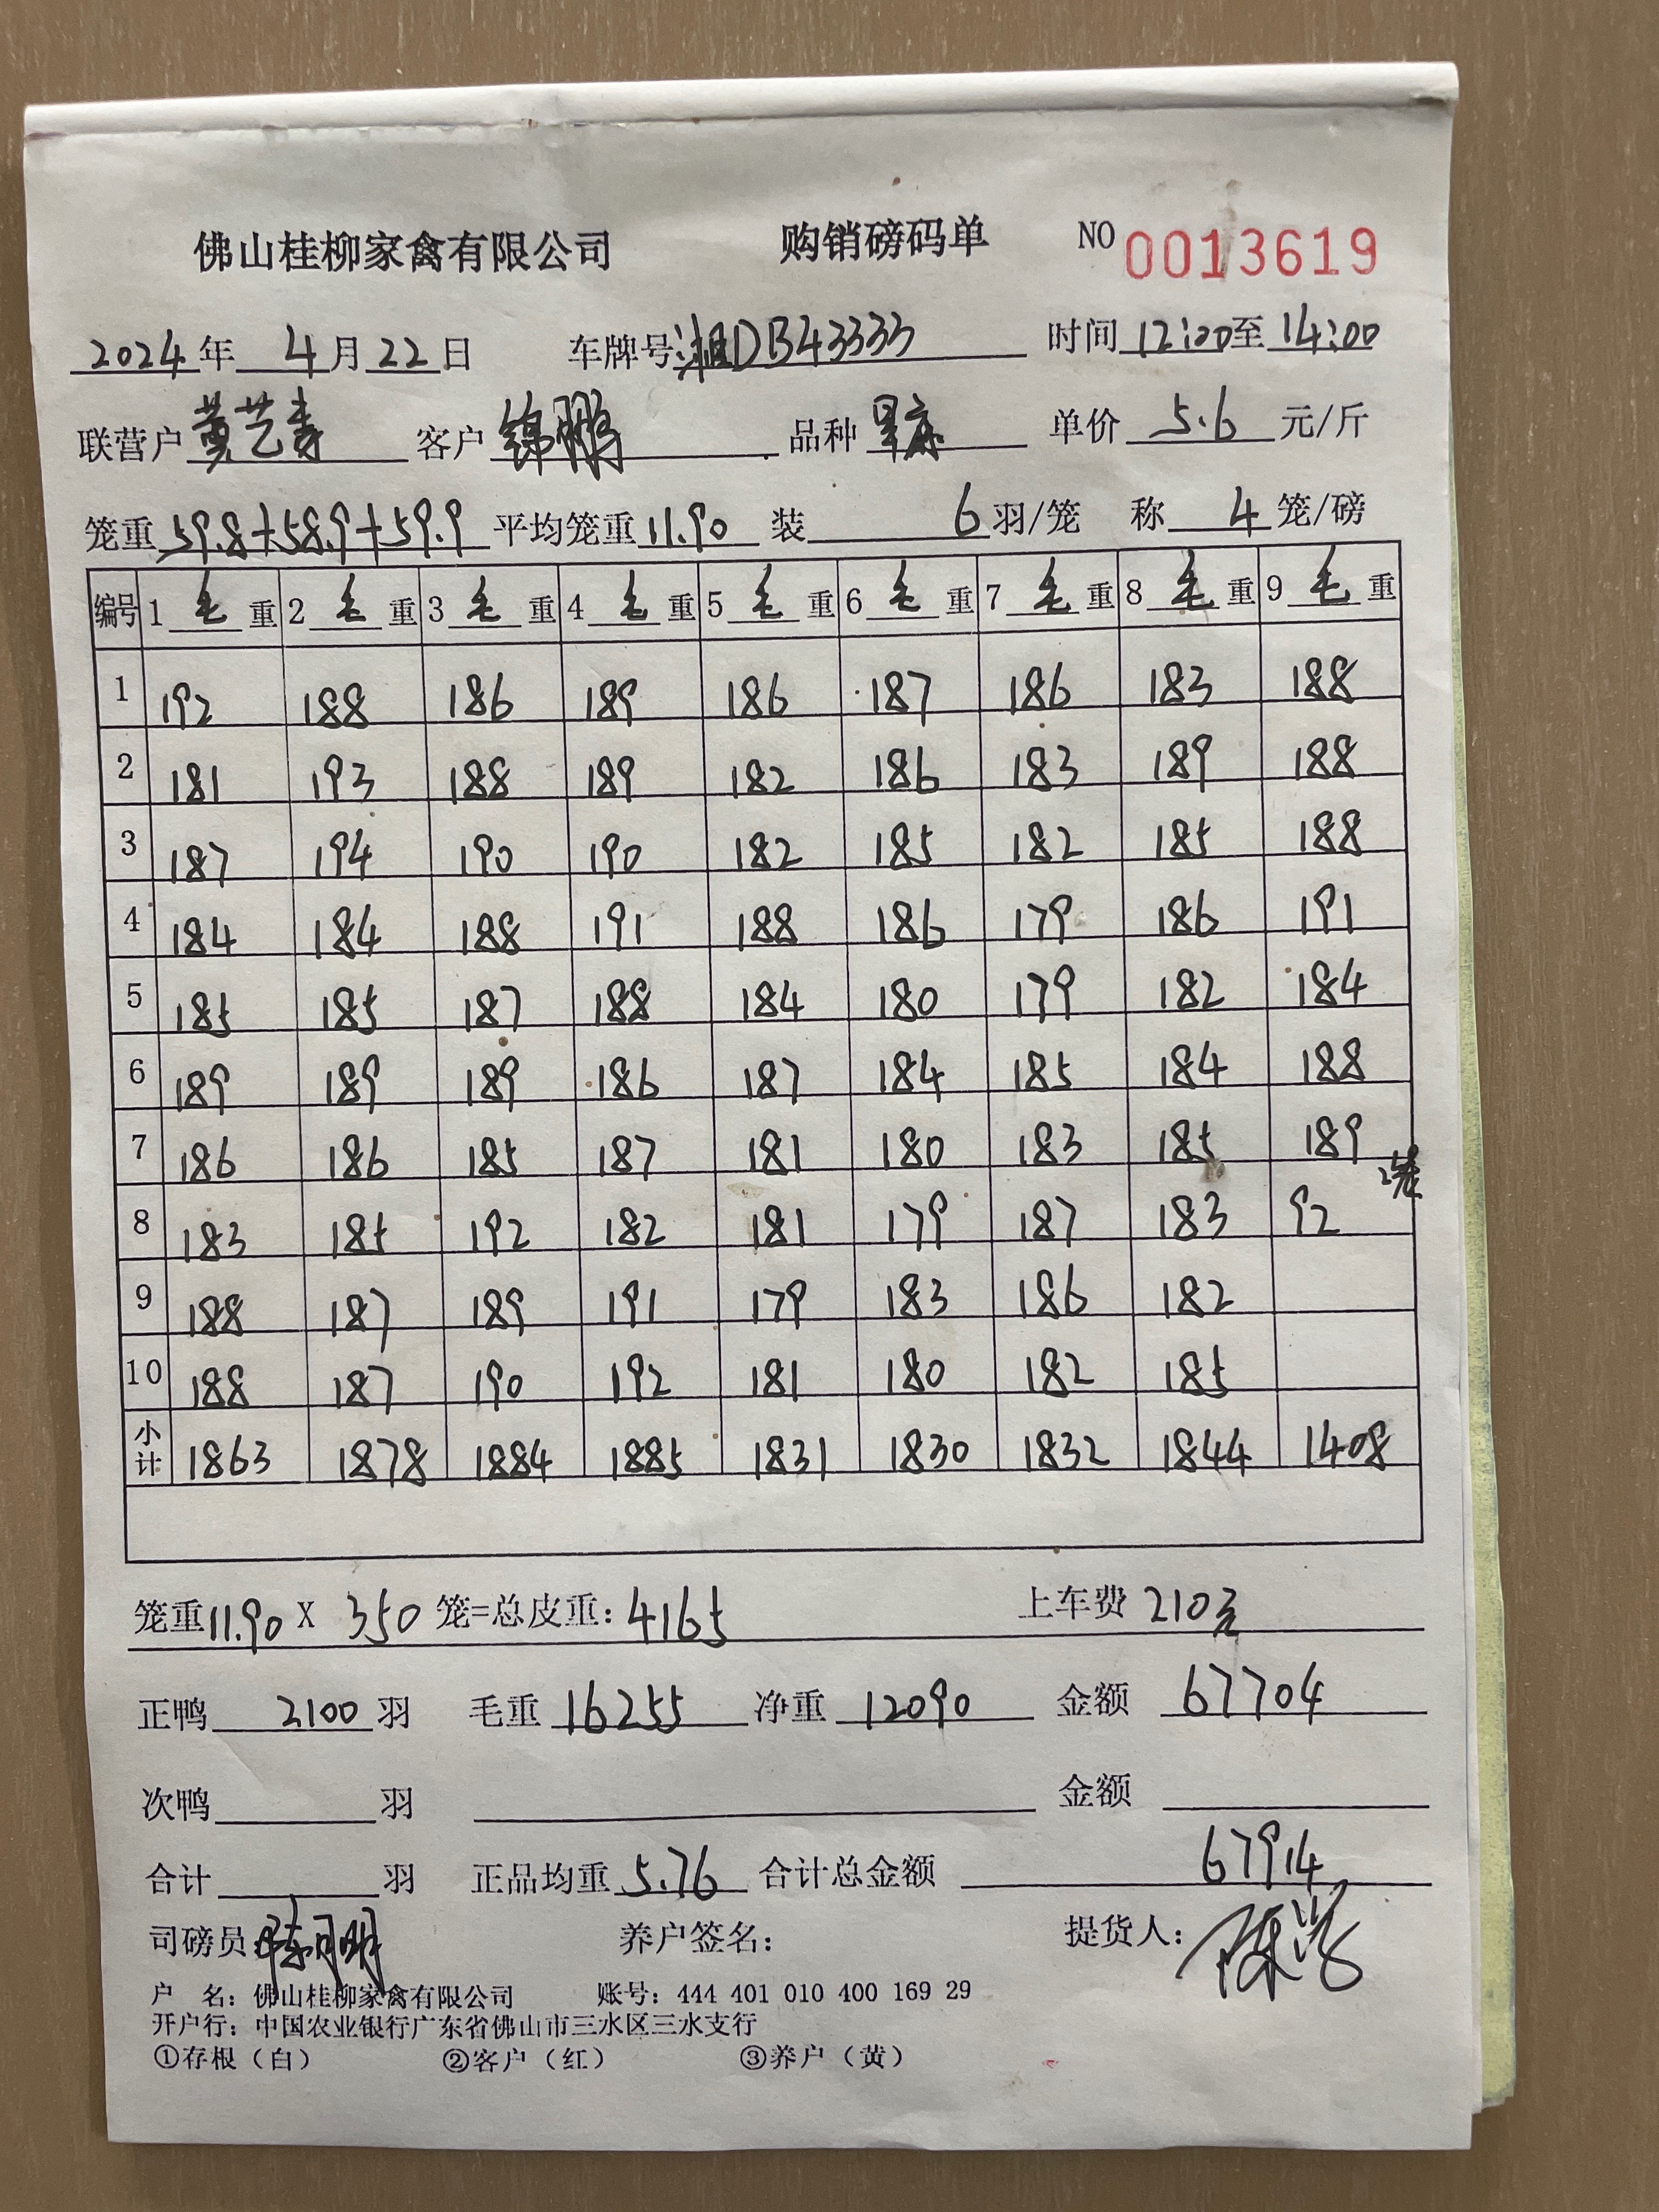 佛山桂柳家禽有限公司 购销磅码单 NO 0013619
2024年 4月22日 车牌号湘DB43333 时间12:00至14:00
联营户 黄艺寿 客户 锦鹏 品种 单价 5.6 元/斤
笼重 59.8+58.9+59.9 平均笼重 11.90 装 6 羽/笼 称 4 笼/磅
编号 1毛重 2毛重 3毛重 4毛重 5毛重 6毛重 7毛重 8毛重 9毛重
1 192 188 186 189 186 187 186 183 188
2 181 193 188 189 182 186 183 189 188
3 187 194 190 190 182 185 182 185 188
4 184 184 188 191 188 186 179 186 191
5 185 185 187 188 184 180 179 182 184
6 189 189 189 186 187 184 185 184 188
7 186 186 185 187 181 180 183 185 189
8 183 185 192 182 181 179 187 183 92 2笼
9 188 187 189 191 179 183 186 182
10 188 187 190 192 181 180 182 185
小计 1863 1878 1884 1885 1831 1830 1832 1844 1408
笼重11.90 X 350 笼=总皮重：4165 上车费 210元
正鸭 2100 羽 毛重 16255 净重 12090 金额 67704
次鸭 羽 金额
合计 羽 正品均重 5.76 合计总金额 67914
司磅员：陈明 养户签名： 提货人：
户 名：佛山桂柳家禽有限公司 账号：444 401 010 400 169 29
开户行：中国农业银行广东省佛山市三水区三水支行
①存根（白） ②客户（红） ③养户（黄）